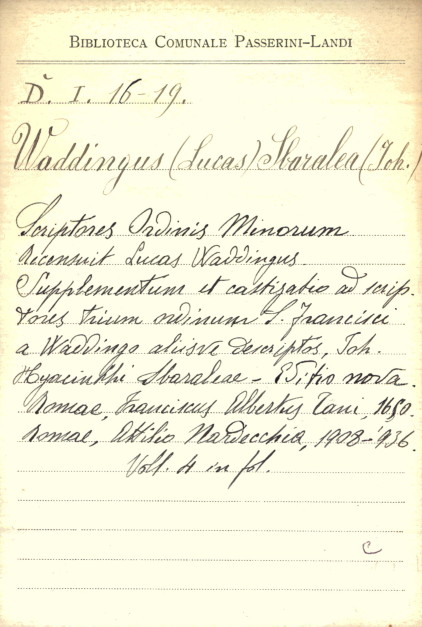 BIBLIOTECA COMUNALE PASSERINI-LANDI
Ď. I. 16-19.
Waddingus (Lucas) Sbaralea (Joh.)
Scriptores Ordinis Minorum
Recensuit Lucas Waddingus
Supplementum et castigatio ad scrip-
tores trium ordinum S. Francisci
a Waddingo aliisve descriptos, Joh.
Hyacinthi Sbaraleae - Editio nova.
Romae, Franciscus Albertus Tani, 1650.
Romae, Attilio Nardecchia, 1908-'936.
Voll. 4 in fol.
C